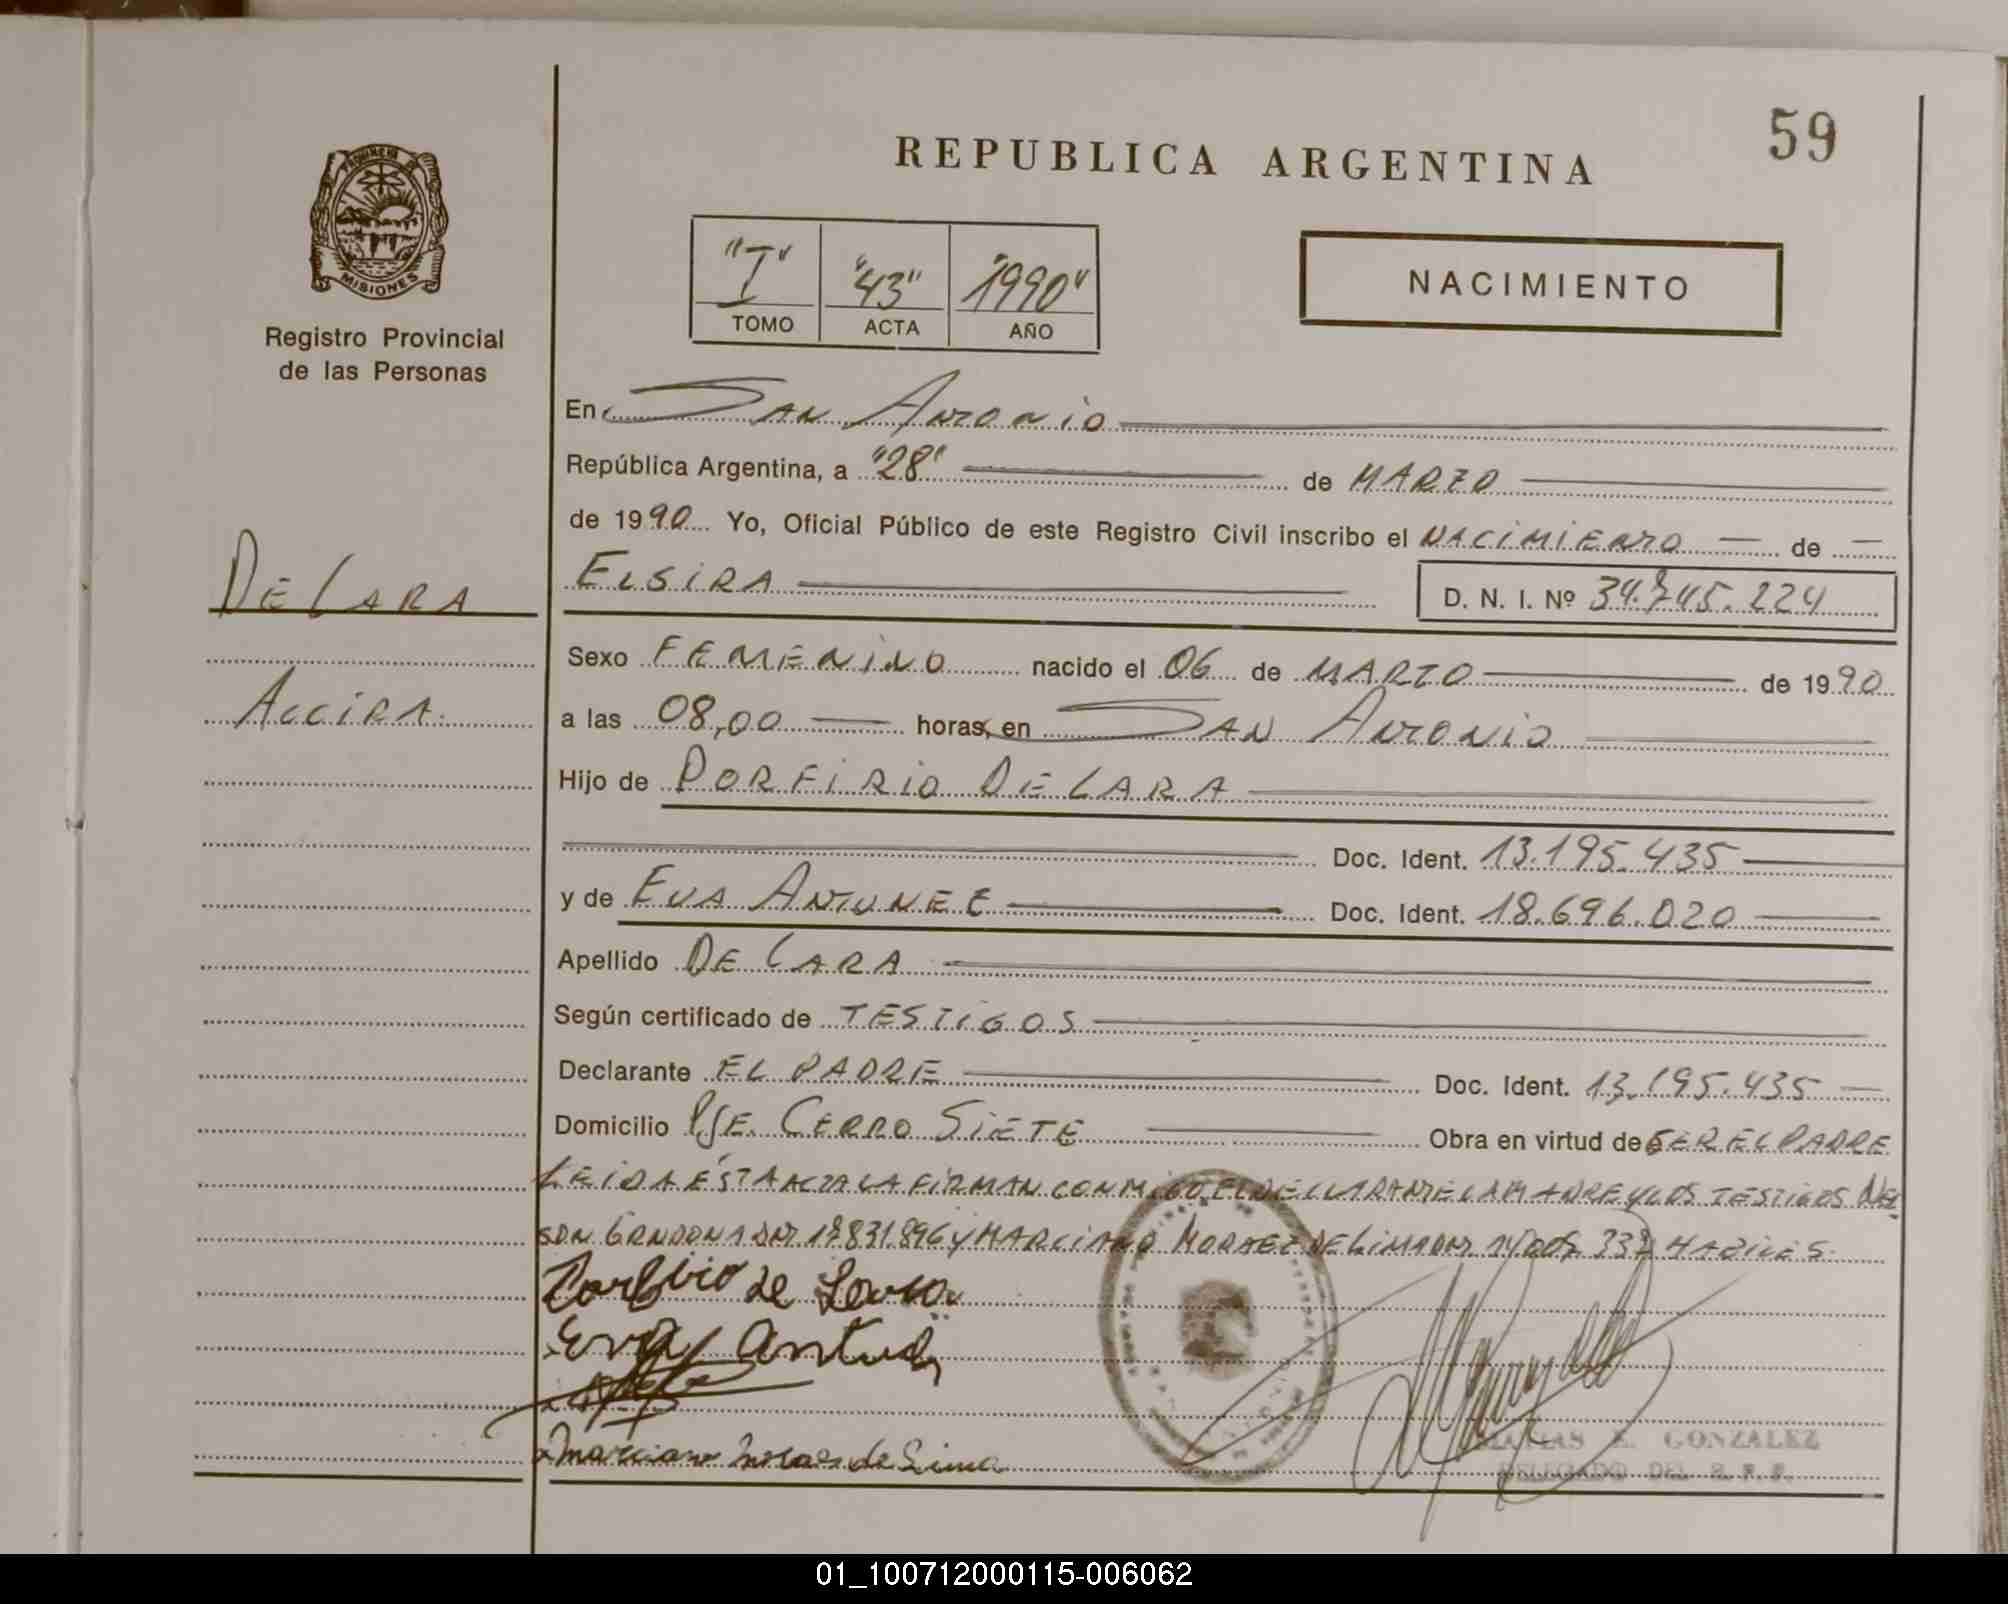 59
REPUBLICA ARGENTINA
PROVINCIA DE
MISIONES
Registro Provincial
de las Personas
"I" "43" "1990"
TOMO ACTA AÑO
NACIMIENTO
En San Antonio
República Argentina, a "28" de MARZO
de 1990 Yo, Oficial Público de este Registro Civil inscribo el NACIMIENTO de
ELSIRA
D. N. I. Nº
DE LARA
Sexo FEMENINO nacido el 06 de MARZO de 1990
a las 08,00 horas, en SAN ANTONIO
Hijo de PORFIRIO DE LARA
Doc. Ident. 13.195.435
y de EVA ANTUNEZ Doc. Ident. 18.696.020
Apellido DE LARA
Según certificado de TESTIGOS
Declarante EL PADRE Doc. Ident. 13.195.435
Domicilio PJE. CERRO SIETE Obra en virtud de SER EL PADRE
LEIDA ÉSTA ACTA LA FIRMAN CONMIGO EL DECLARANTE LA MADRE Y LOS TESTIGOS NEL
SON DNI Y MARCIANO MORAEZ DE LIMA DNI HABILES.
Porfirio de Lara
Eva
Marciano Moraes de Lima
MATIAS E. GONZALEZ
DELEGADO DEL R. P. P.
01_100712000115-006062